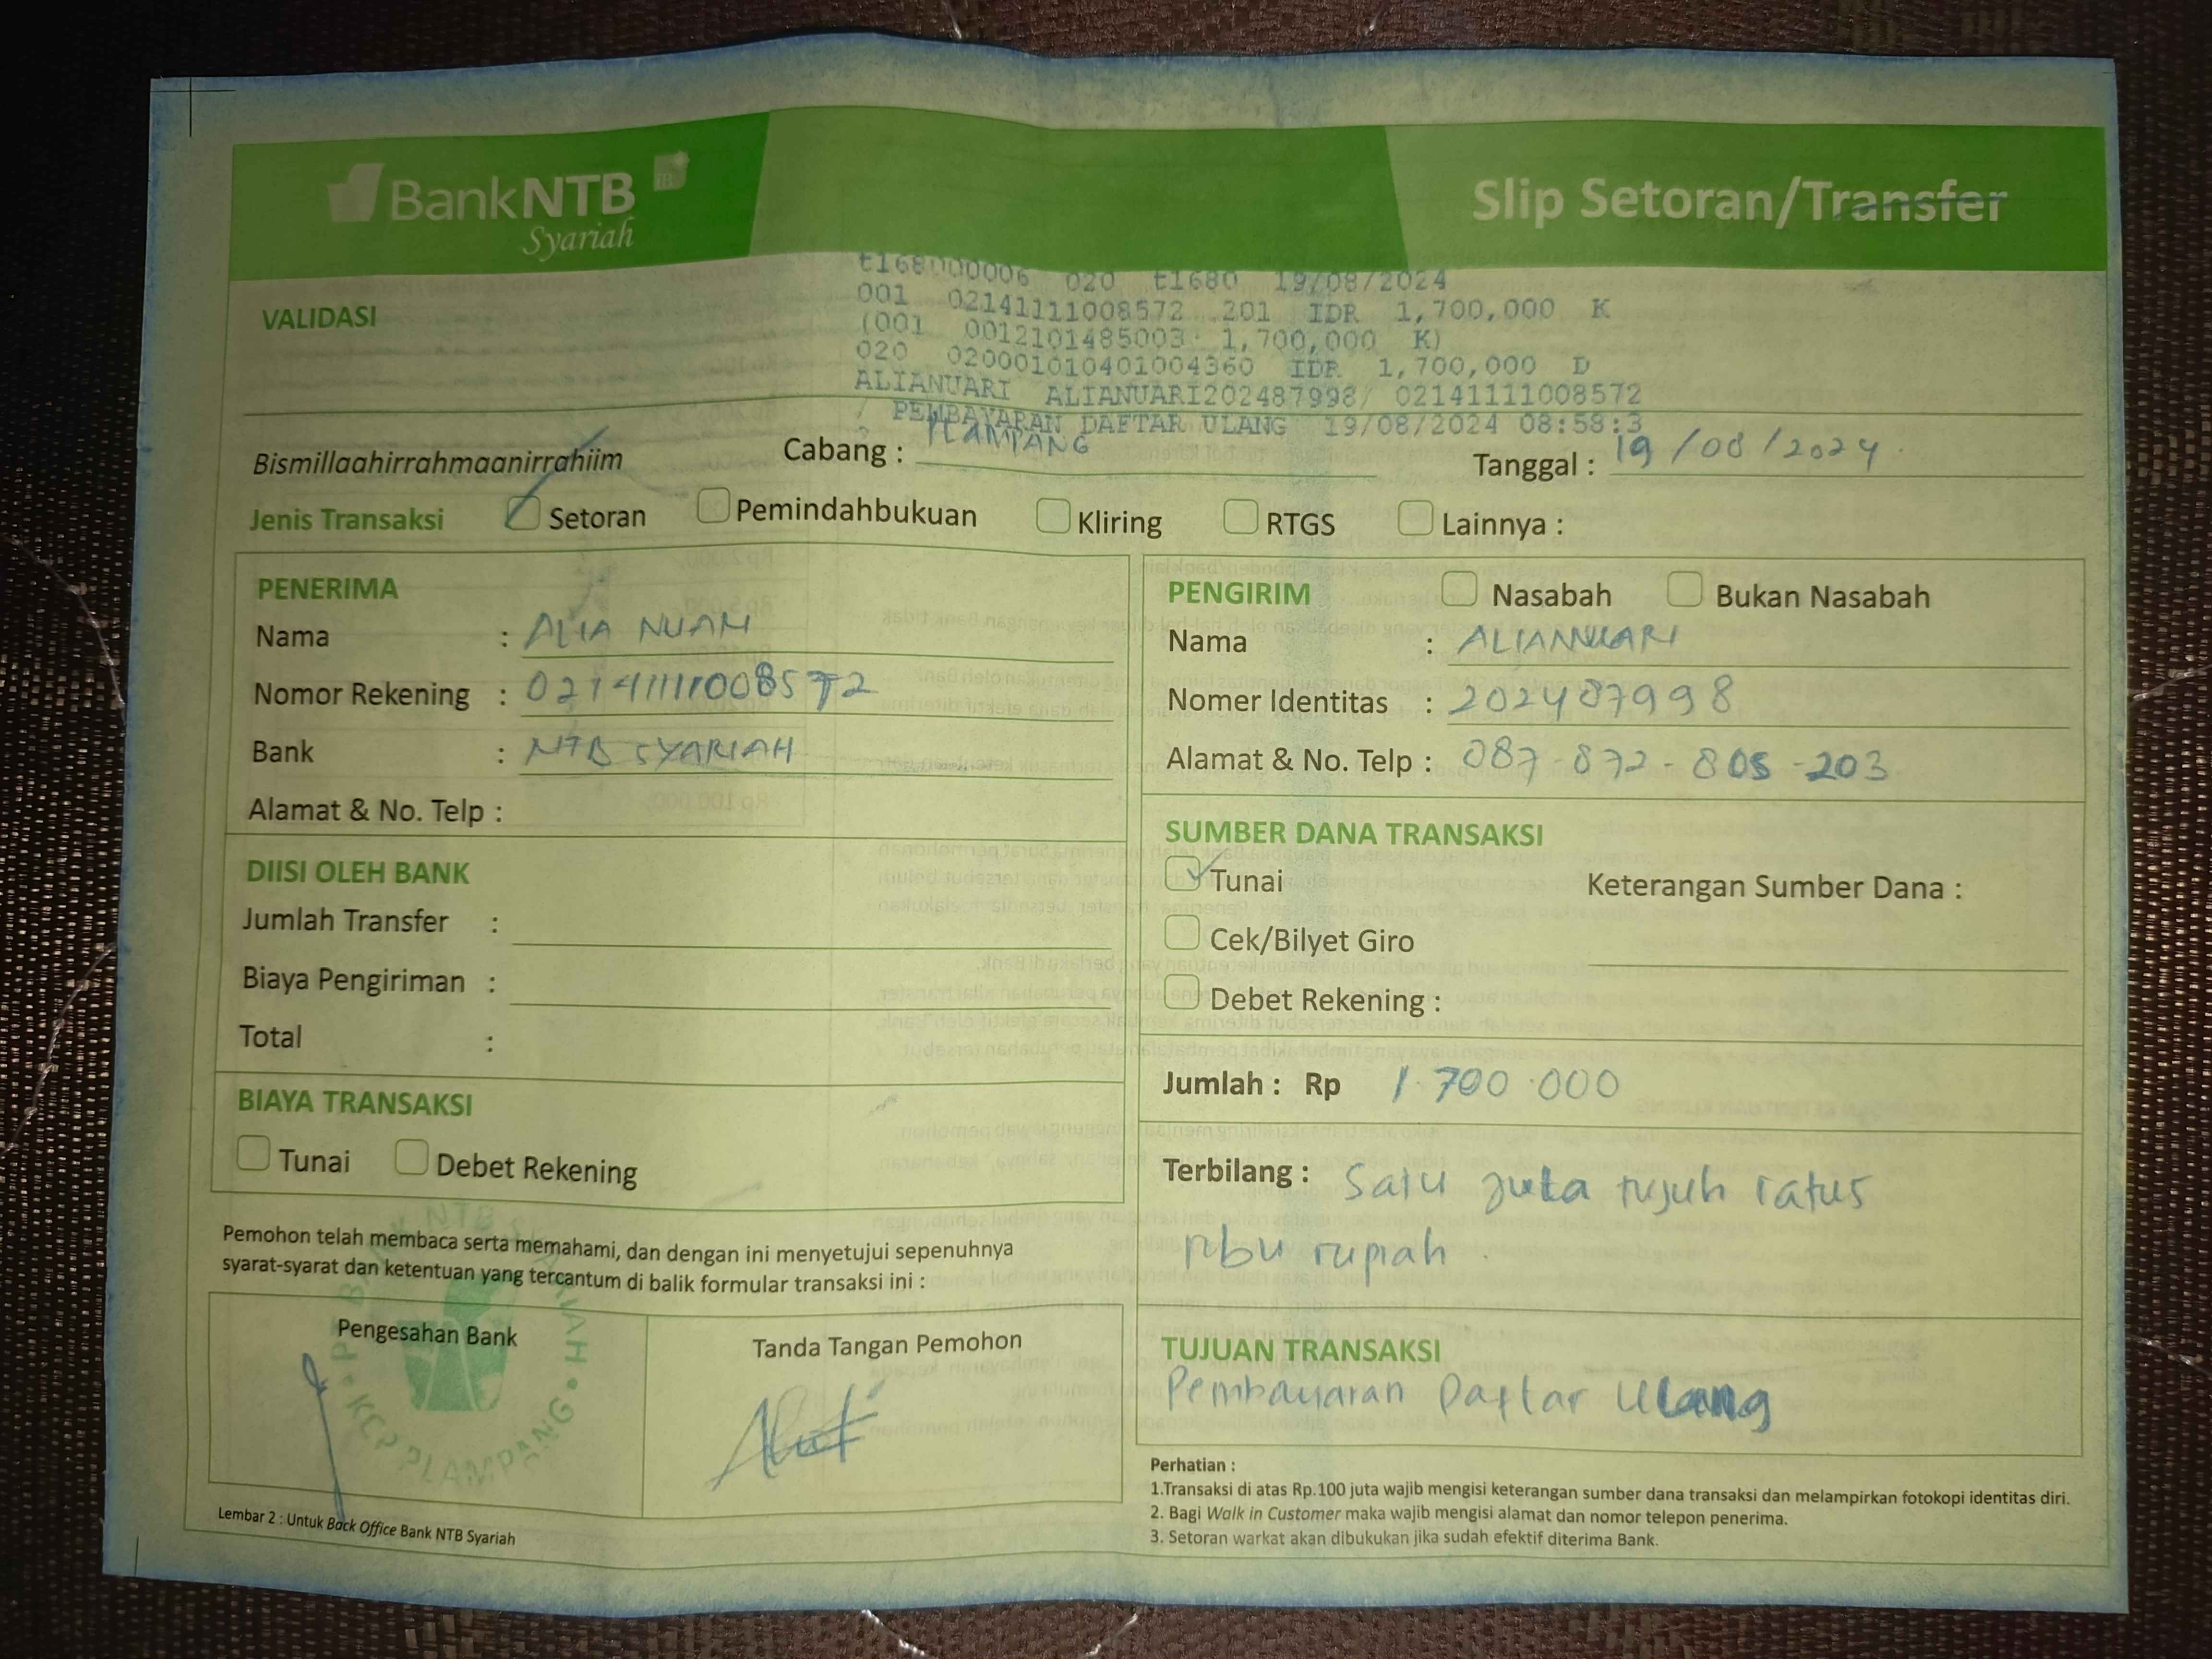 BankNTB
Syariah
Slip Setoran/Transfer
VALIDASI
t168000006 020 t1680 19/08/2024
001 02141111008572 201 IDR 1,700,000 K
(001 0012101485003 1,700,000 K)
020 020001010401004360 IDR 1,700,000 D
ALIANUARI ALIANUARI202487998/ 02141111008572
/ PEMBAYARAN DAFTAR ULANG 19/08/2024 08:58:3
Bismillaahirrahmaanirrahiim
Cabang : PLAMPANG
Tanggal : 19/08/2024
Jenis Transaksi Setoran Pemindahbukuan Kliring RTGS Lainnya :
PENERIMA
Nama : ALIA NUAM
Nomor Rekening : 02141111008572
Bank : NTB SYARIAH
Alamat & No. Telp :
DIISI OLEH BANK
Jumlah Transfer :
Biaya Pengiriman :
Total :
BIAYA TRANSAKSI
Tunai Debet Rekening
Pemohon telah membaca serta memahami, dan dengan ini menyetujui sepenuhnya
syarat-syarat dan ketentuan yang tercantum di balik formular transaksi ini :
Pengesahan Bank
KCP PLAMPANG
Tanda Tangan Pemohon
Lembar 2 : Untuk Back Office Bank NTB Syariah
PENGIRIM Nasabah Bukan Nasabah
Nama : ALIANUARI
Nomer Identitas : 202487998
Alamat & No. Telp : 087-872-805-203
SUMBER DANA TRANSAKSI
Tunai Keterangan Sumber Dana :
Cek/Bilyet Giro
Debet Rekening :
Jumlah : Rp 1.700.000
Terbilang : Satu juta tujuh ratus
ribu rupiah.
TUJUAN TRANSAKSI
Pembayaran Daftar Ulang
Perhatian :
1.Transaksi di atas Rp.100 juta wajib mengisi keterangan sumber dana transaksi dan melampirkan fotokopi identitas diri.
2. Bagi Walk in Customer maka wajib mengisi alamat dan nomor telepon penerima.
3. Setoran warkat akan dibukukan jika sudah efektif diterima Bank.